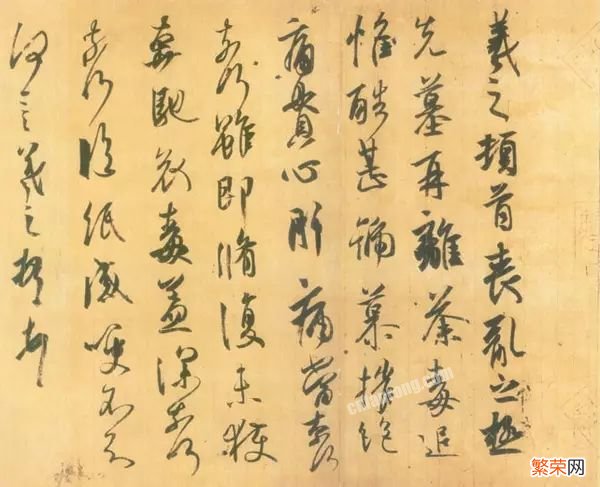 羲之頓首喪亂之極
先墓再離荼毒追
惟酷甚號慕摧絕
痛貫心肝痛當奈何
奈何雖即脩復未獲
奔馳哀毒益深奈何
奈何臨紙感哽不知
何言羲之頓首頓首
繁荣网